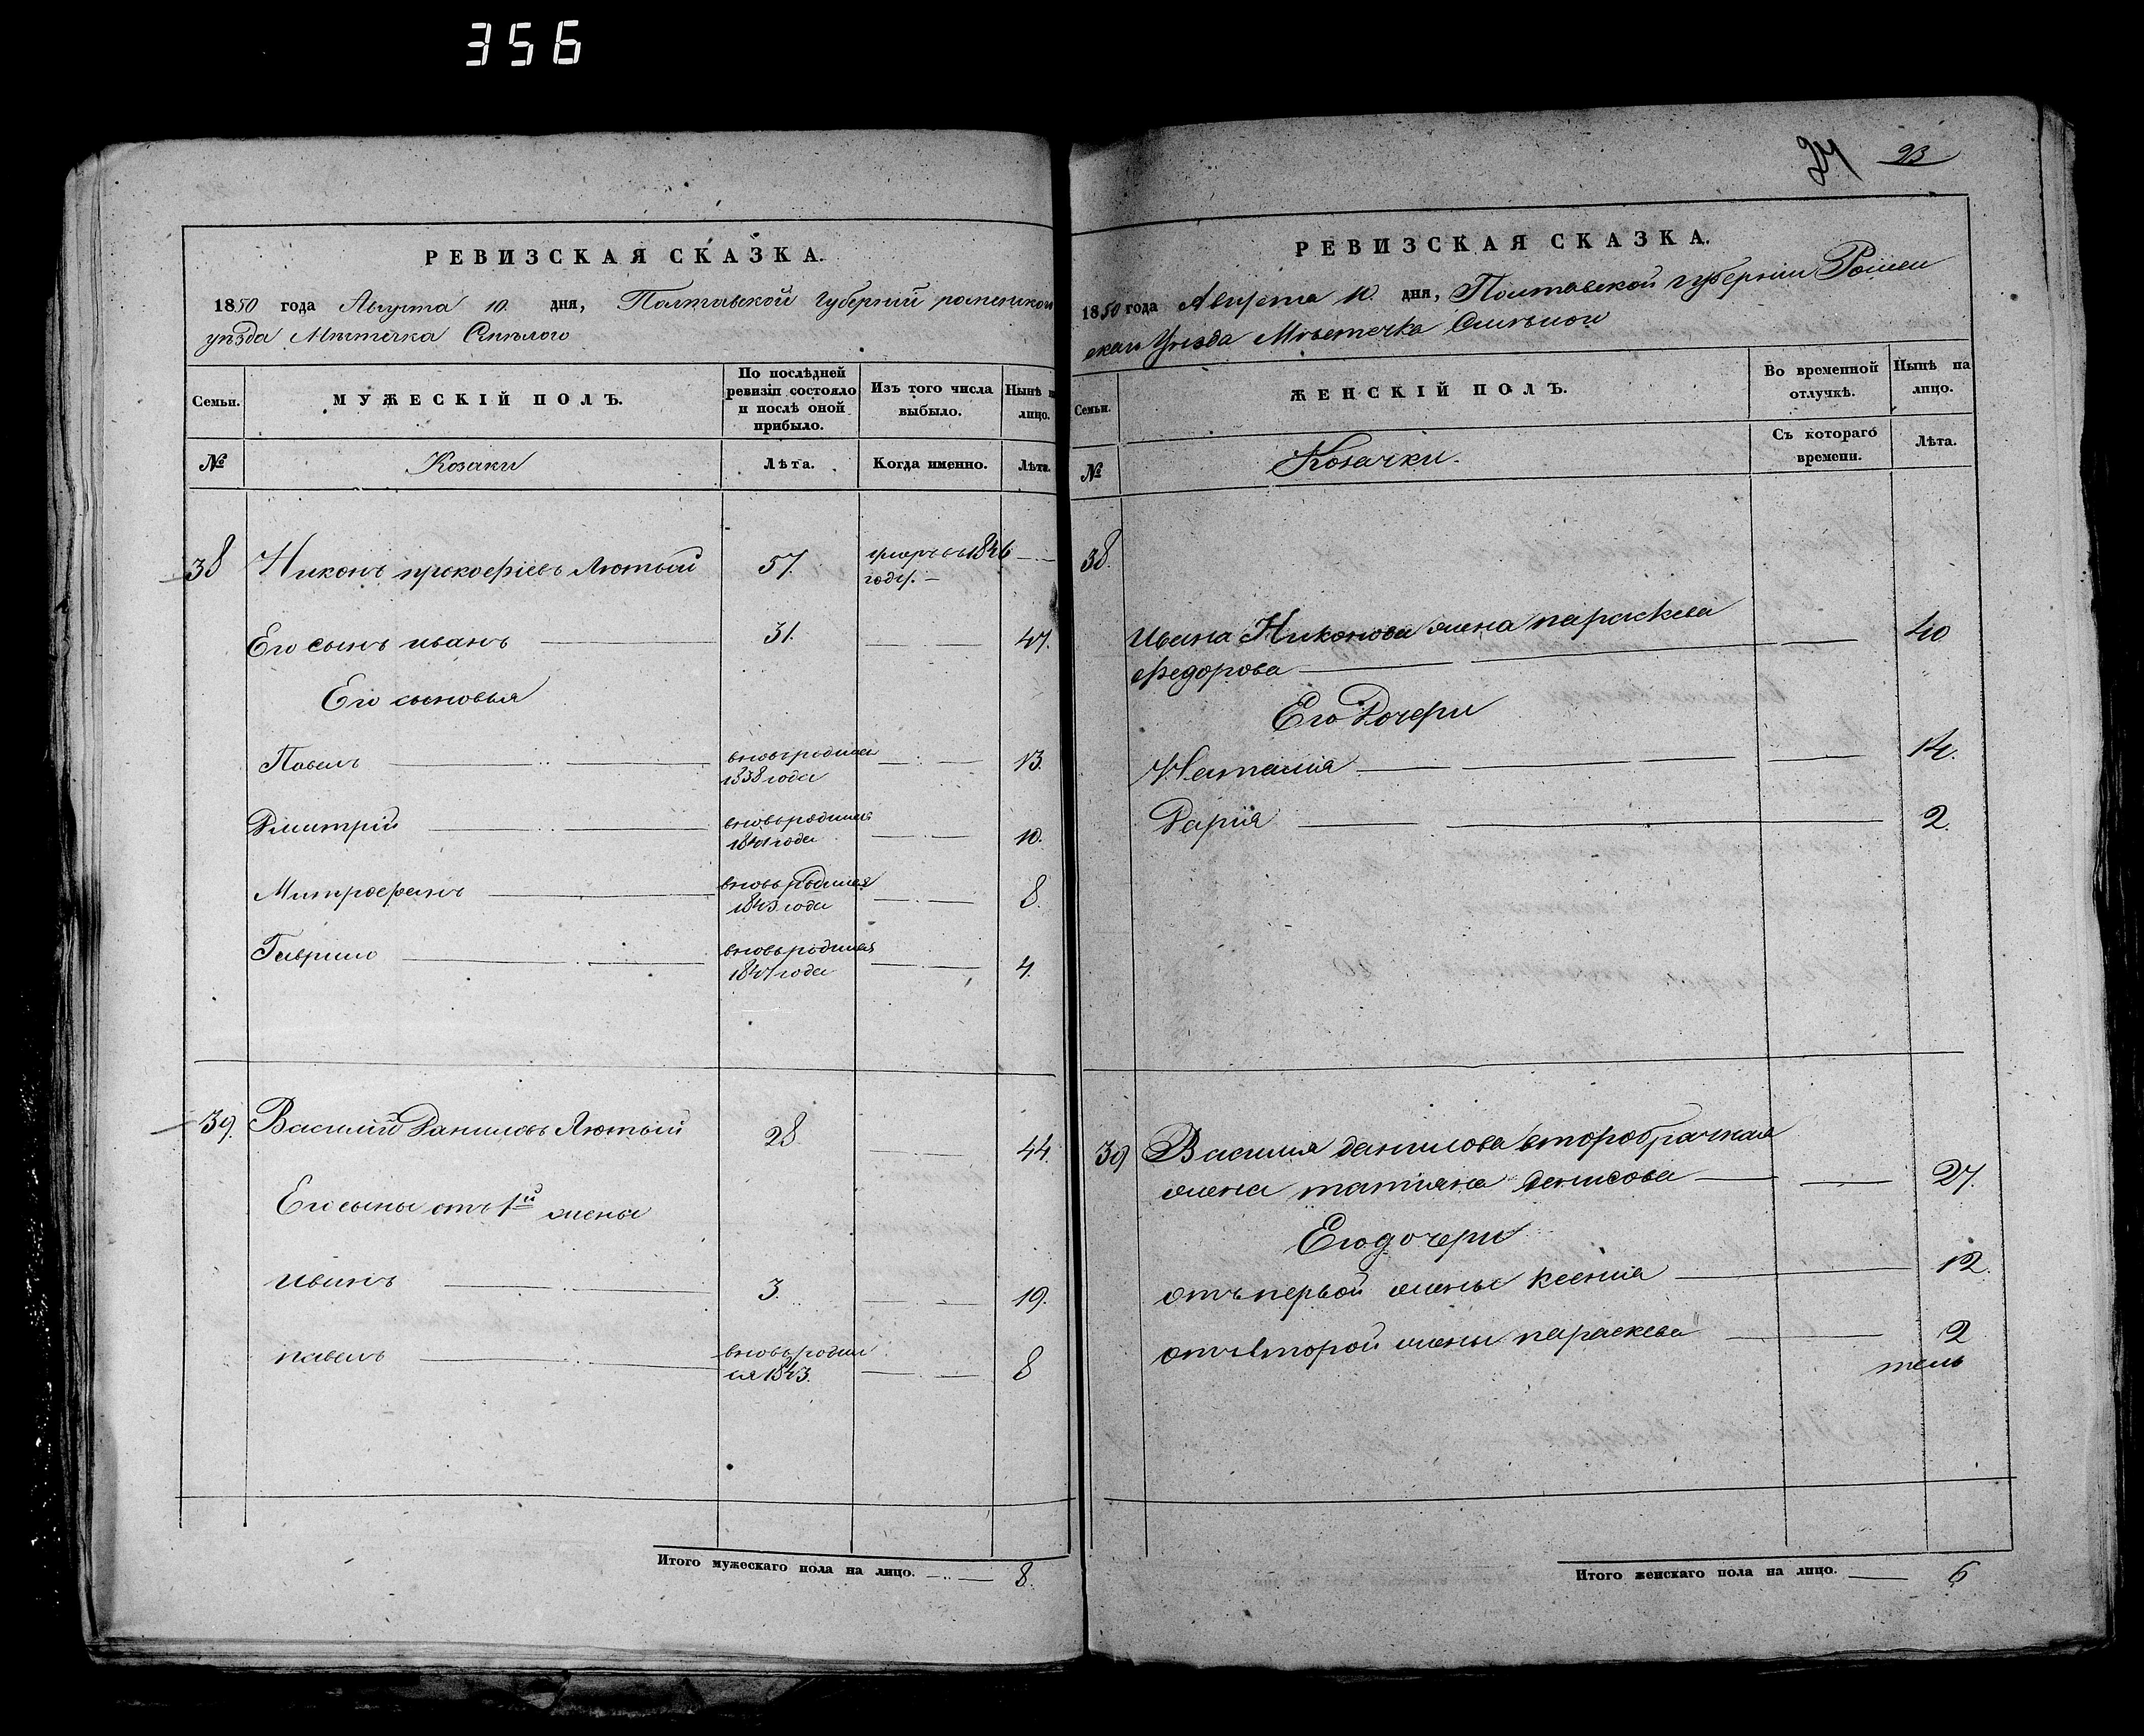 356
24 93
РЕВИЗСКАЯ СКАЗКА.
1850 года Августа 10. дня, Полтавской Губерній роменскои
уѣзда Мѣстечка Смѣлого
Семьи. МУЖЕСКІЙ ПОЛЪ. По послѣдней ревизіи состояло и послѣ оной прибыло. Изъ того числа выбыло. Нынѣ на лицо.
№ Козаки Лѣта. Когда именно. Лѣта.
38 Никонъ прокофіевъ Лютый 57. умеръ въ 1846
году.
Его сынъ иванъ 31. 47.
Его сыновья
Павелъ вновьродился 13.
1838 года
Дмитрій вновьродился 10.
1841 года
Митрофанъ вновьродился 8.
1843 года
Гаврило вновьродился 4.
1847 года
39. Василій Даниловъ Лютый 28 44.
Его сыны отъ 1й жены
иванъ 3. 19.
павелъ вновьродил 8
ся 1843.
Итого мужескаго пола на лицо. 8.
РЕВИЗСКАЯ СКАЗКА.
1850 года Августа 10. дня, Полтавской губерніи Ромен
скаго Уѣзда Мѣстечка Смѣлого
Семьи. ЖЕНСКІЙ ПОЛЪ. Во временной отлучкѣ. Нынѣ на лицо.
№ Козачки. Съ котораго времени. Лѣта.
38.
Ивана Никонова жена параскева 40
федорова
Его Дочери
Наталия 14.
Дария 2.
39 Василия данилова второбрачная
жена татияна денисова 27.
Его дочери
отъ первой жены ксения 12.
отъ второй жены параскева 2
Итого женскаго пола на лицо. 6